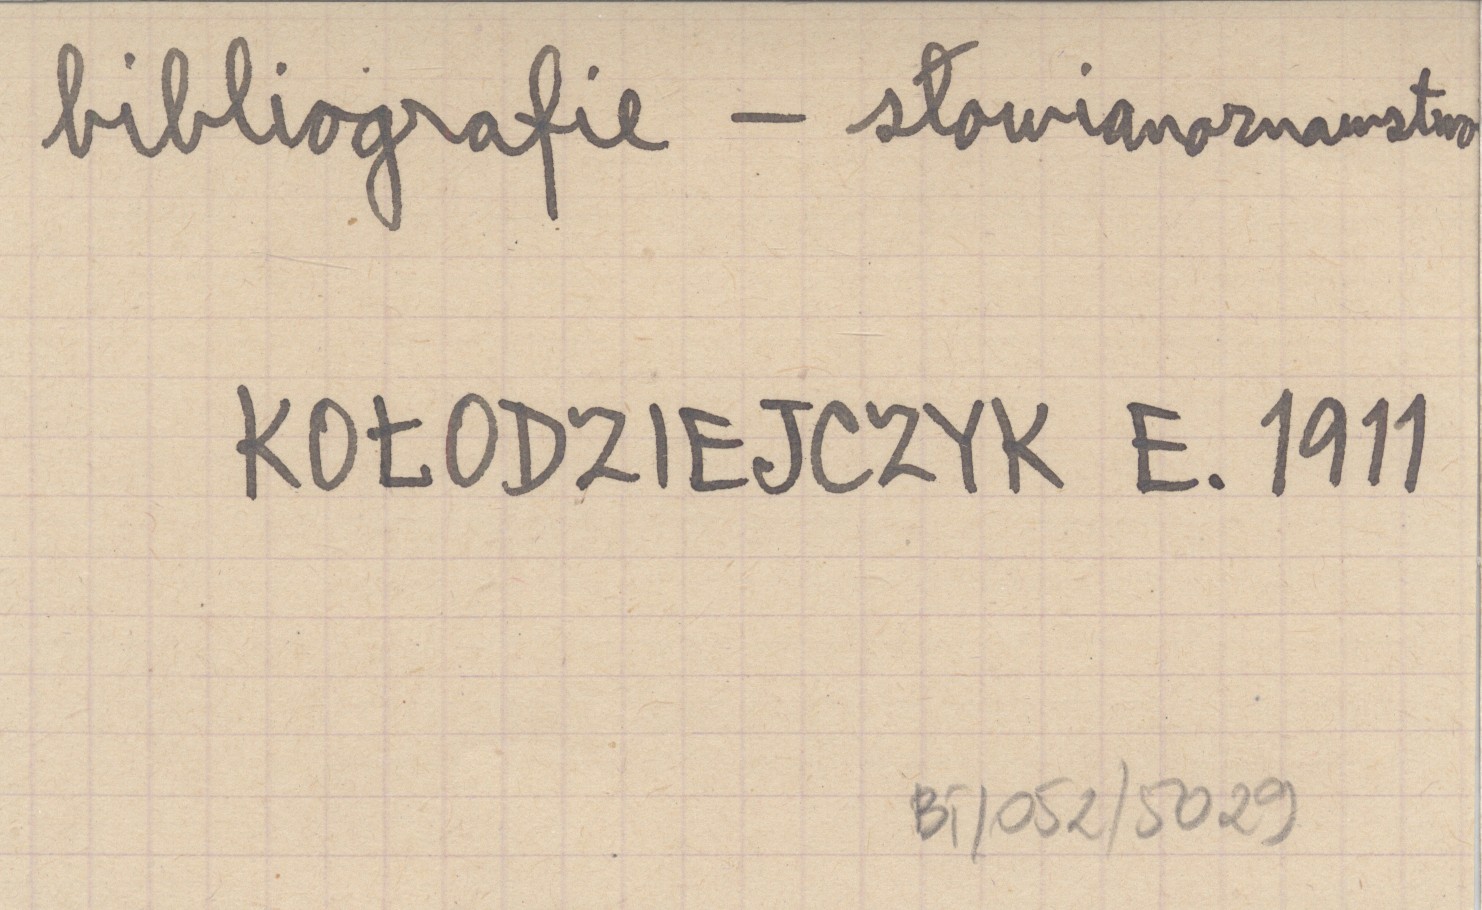 bibliografie – słowianoznawstwo
KOŁODZIEJCZYK E. 1911
BT/052/5029